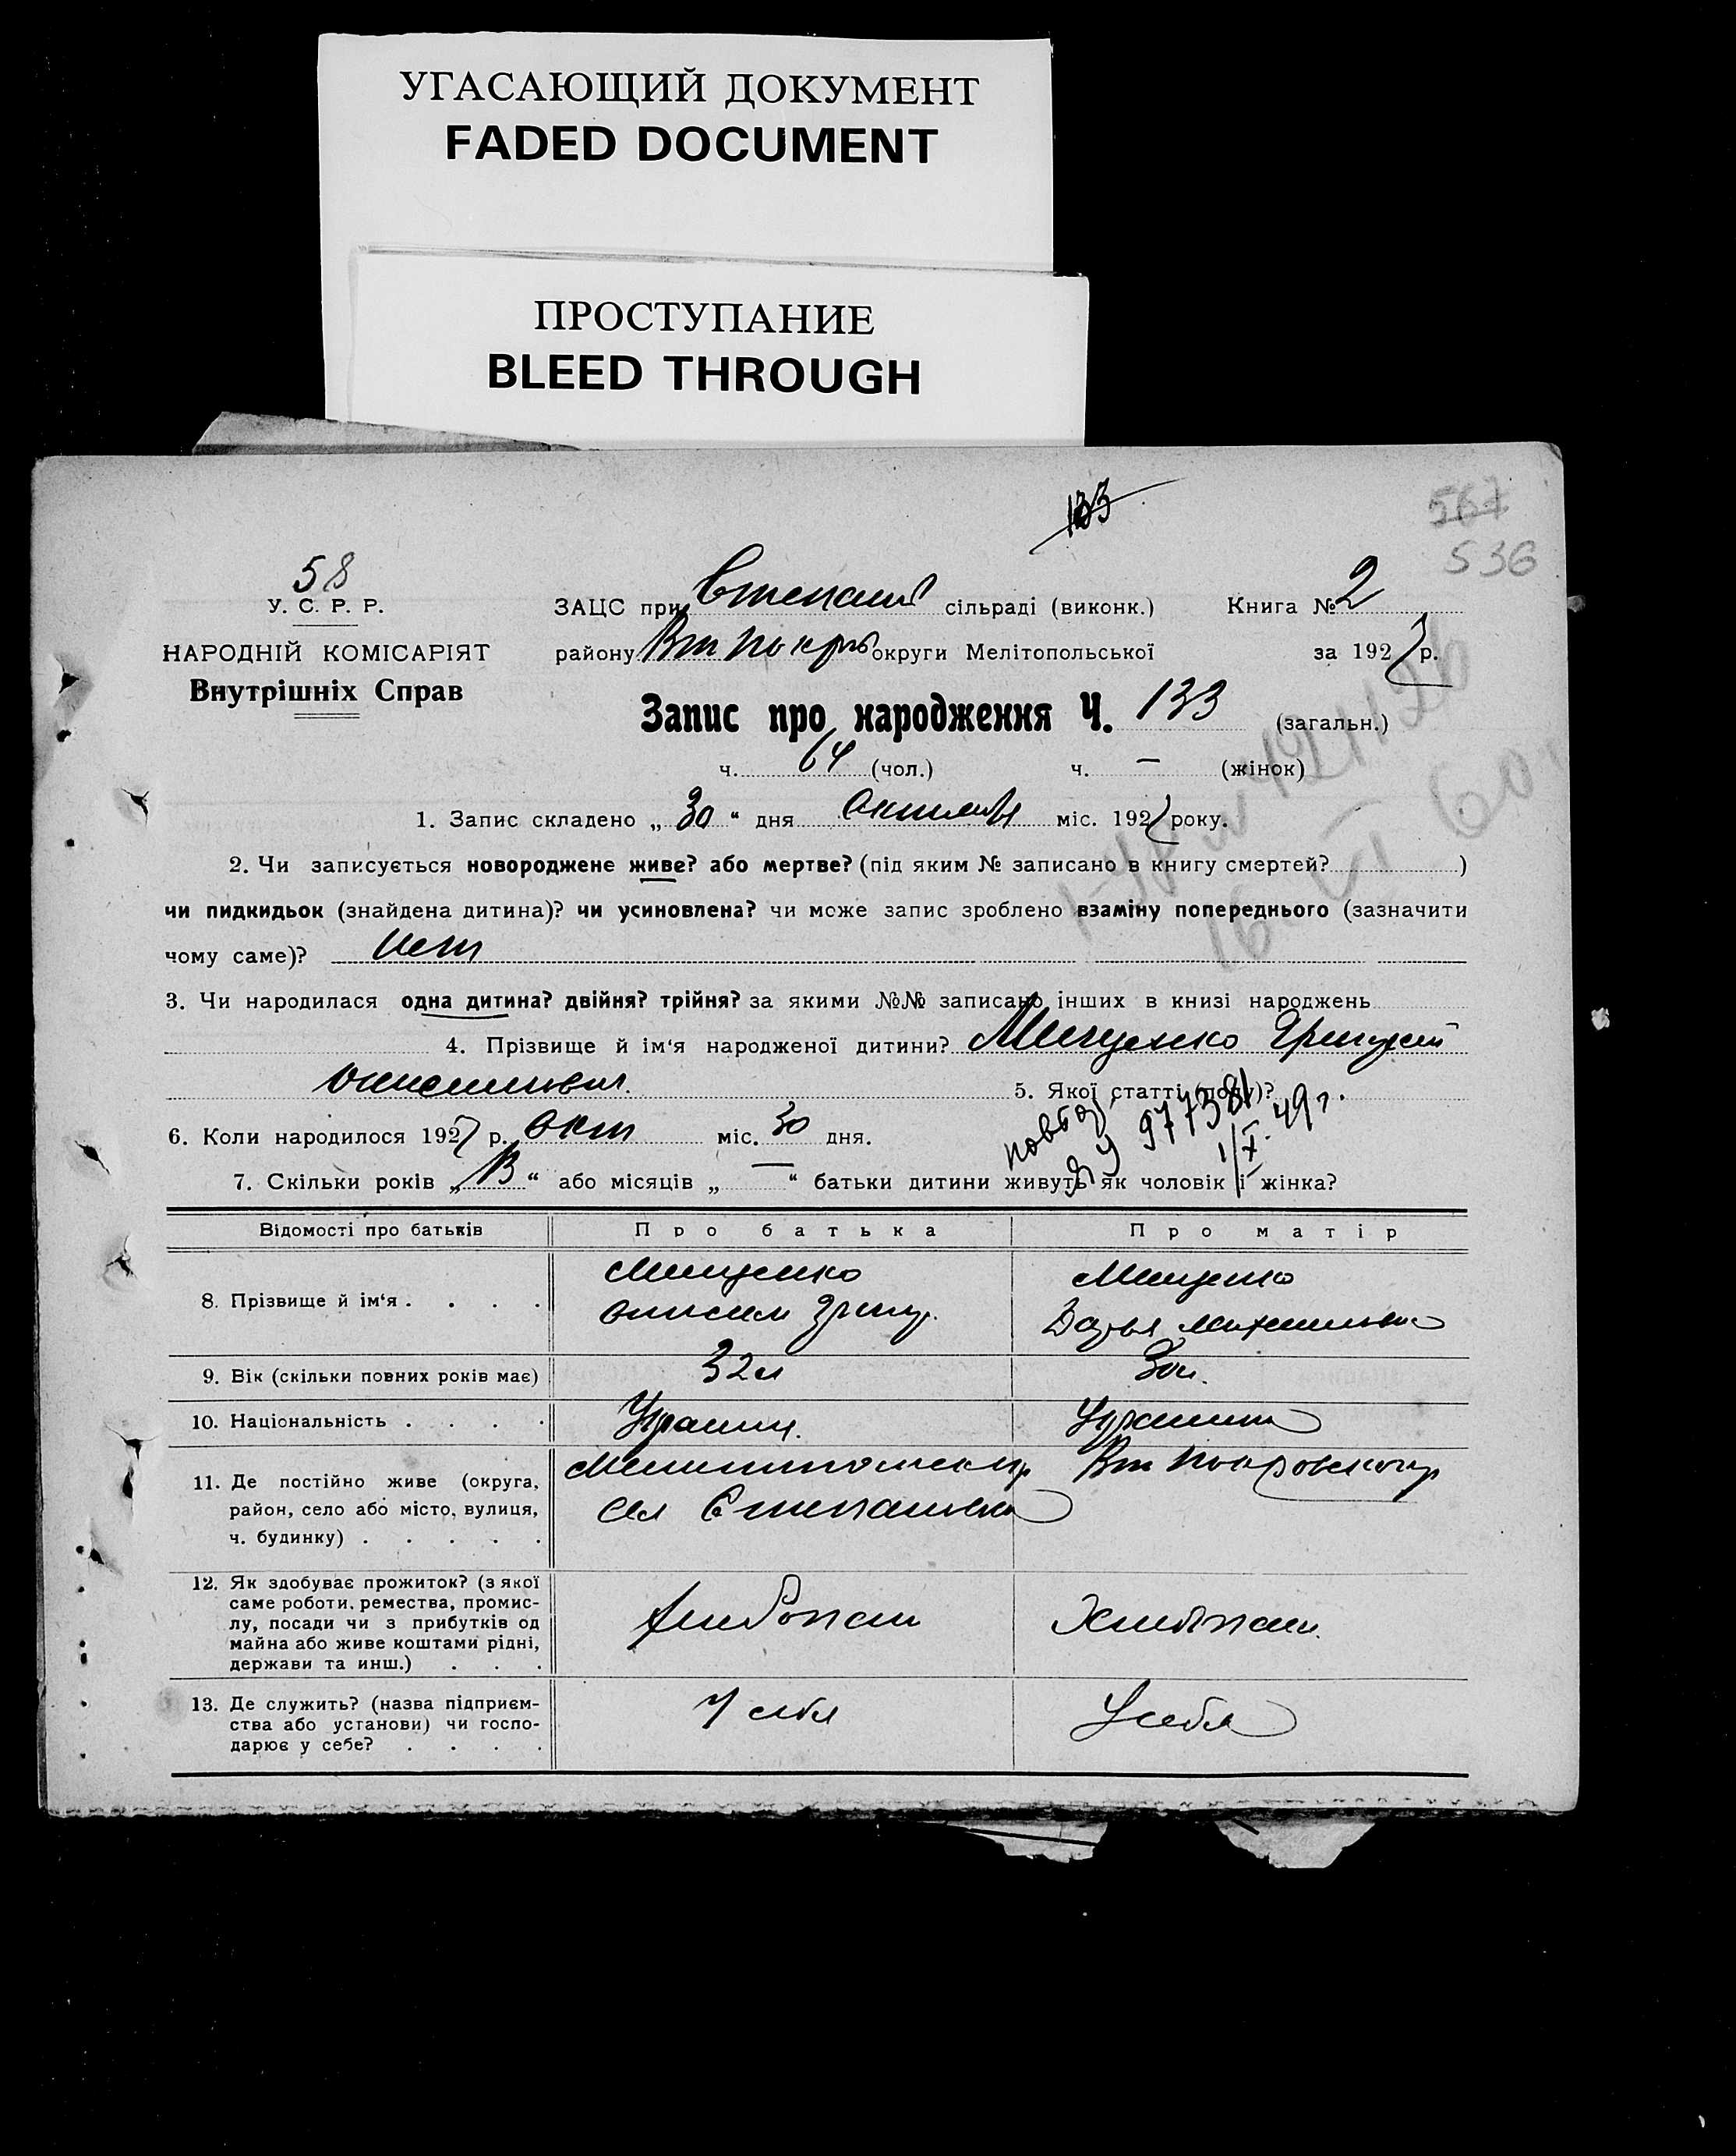 УГАСАЮЩИЙ ДОКУМЕНТ
FADED DOCUMENT
ПРОСТУПАНИЕ
BLEED THROUGH
133
567
536
58
У. С. Р. Р.
НАРОДНІЙ КОМІСАРІЯТ
Внутрішніх Справ
ЗАЦС при Степанів сільраді (виконк.) Книга № 2
району Вт Покров округи Мелітопольської за 1927 р.
Запис про народження Ч. 133 (загальн.)
ч. 64 (чол.) ч. — (жінок)
1. Запис складено „ 30 “ дня октября міс. 1927 року.
2. Чи записується новороджене живе? або мертве? (під яким № записано в книгу смертей? )
чи пидкидьок (знайдена дитина)? чи усиновлена? чи може запис зроблено взаміну попереднього (зазначити
чому саме)? нет
3. Чи народилася одна дитина? двійня? трійня? за якими №№ записано інших в книзі народжень
4. Прізвище й ім‘я народженої дитини? Мищенко Григорий
Онисимович.
5. Якої статті (полу)?
повтор
977381
1/X 49 г.
6. Коли народилося 1927 р. окт міс. 30 дня.
7. Скільки років „ 13 “ або місяців „ — “ батьки дитини живуть як чоловік і жінка?
Відомості про батьків Про батька Про матір
8. Прізвище й ім‘я . . . . Мищенко Мищенко
Онисим Григ. Дарья
9. Вік (скільки повних років має) 32 л 30 л.
10. Національність . . . . Украинц. Украинка
11. Де постійно живе (округа, район, село або місто, вулиця, ч. будинку) . . . . . Мелитопольску Вт Покровского р
сел Степановка
12. Як здобуває прожиток? (з якої
саме роботи, ремества, промис-
лу, посади чи з прибутків од
майна або живе коштами рідні,
держави та инш.) . . . Хлебопаш Хлебпаш.
13. Де служить? (назва підприєм-
ства або установи) чи госпо-
дарює у себе? . . . . У себя У себя